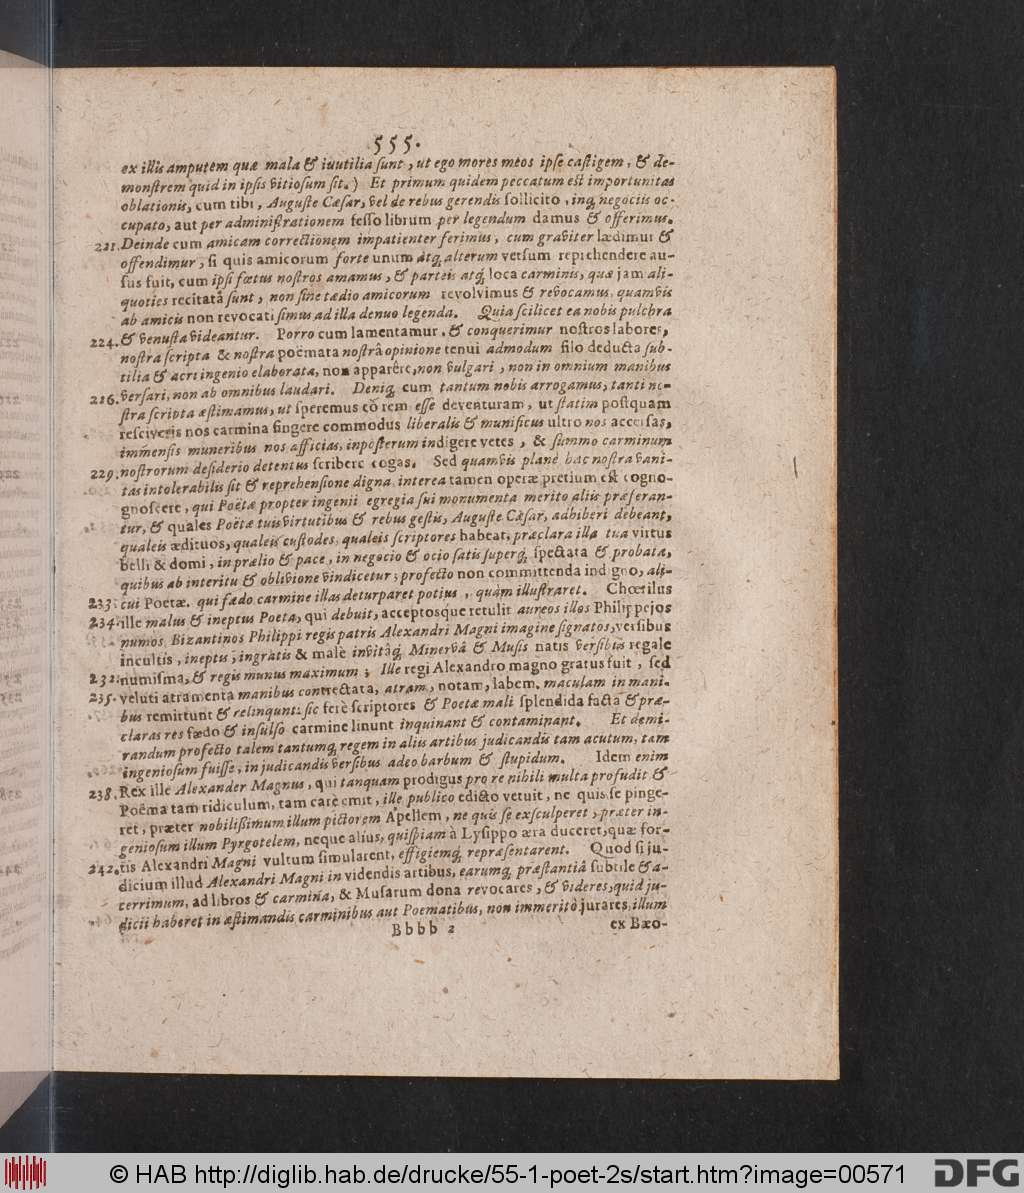 555.
ex illis amputem quæ mala & iuutilia sunt, ut ego mores meos ipse castigem, & de-
monstrem quid in ipsis vitiosum sit.) Et primum quidem peccatum est importunitas
oblationis, cum tibi, Auguste Cæsar, vel de rebus gerendis sollicito, inq́; negociis oc-
cupato, aut per administrationem fesso librum per legendum damus & offerimus.
221. Deinde cum amicam correctionem impatienter ferimus, cum graviter lædimur &
offendimur, si quis amicorum forte unum atq́; alterum versum reprehendere au-
sus fuit, cum ipsi fœtus nostros amamus, & parteis atq́; loca carminis, quæ jam ali-
quoties recitatâ sunt, non sine tædio amicorum revolvimus & revocamus, quamvis
ab amicis non revocati simus ad illa denuo legenda. Quia scilicet ea nobis pulchra
224. & venusta videantur. Porro cum lamentamur, & conquerimur nostros labores,
nostra scripta & nostra poëmata nostrâ opinione tenui admodum filo deducta sub-
tilia & acri ingenio elaborata, non apparêre, non vulgari, non in omnium manibus
226. versari, non ab omnibus laudari. Deniq́; cum tantum nobis arrogamus, tanti no-
stra scripta æstimamus, ut speremus eò rem esse deventuram, ut statim postquam
resciveris nos carmina fingere commodus liberalis & munificus ultro nos accersas,
immensis muneribus nos afficias, inposterum indigere vetes, & summo carminum
229. nostrorum desiderio detentus scribere cogas. Sed quamvis planè hæc nostra vani-
tas intolerabilis sit & reprehensione digna, interea tamen operæ pretium est cogno-
gnoscere, qui Poëtæ propter ingenii egregia sui monumenta merito aliis præferan-
tur, & quales Poëtæ tuis virtutibus & rebus gestis, Auguste Cæsar, adhiberi debeant,
qualeis ædituos, qualeis custodes, qualeis scriptores habeat, præclara illa tua virtus
belli & domi, in prælio & pace, in negocio & ocio satis superq́; spectata & probata,
quibus ab interitu & oblivione vindicetur, profecto non committenda indigno, ali-
233. cui Poëtæ. qui fædo carmine illas deturparet potius, quàm illustraret. Chœrilus
234. ille malus & ineptus Poeta, qui debuit, acceptosque retulit aureos illos Philippejos
numos, Bizantinos Philippi regis patris Alexandri Magni imagine signatos, versibus
incultis, ineptis, ingratis & malè invitâq́; Minervâ & Musis natis versibus regale
232. numisma, & regis munus maximum; Ille regi Alexandro magno gratus fuit, sed
235. veluti atramenta manibus contrectata, atram, notam, labem, maculam in mani-
bus remittunt & relinqunt: sic ferè scriptores & Poetæ mali splendida facta & præ-
claras res fœdo & insulso carmine linunt inquinant & contaminant. Et demi-
randum profecto talem tantumq́; regem in aliis artibus judicandis tam acutum, tam
ingeniosum fuisse, in judicandis versibus adeo barbum & stupidum. Idem enim
238. Rex ille Alexander Magnus, qui tanquam prodigus pro re nihili multa profudit &
Poëma tam ridiculum, tam carè emit, ille publico edicto vetuit, ne quis se pinge-
ret, præter nobilißimum illum pictorem Apellem, ne quis se exsculperet, præter in-
geniosum illum Pyrgotelem, neque alius, quispiam à Lysippo æra duceret, quæ for-
242. tis Alexandri Magni vultum simularent, effigiemq́; repræsentarent. Quod si ju-
dicium illud Alexandri Magni in videndis artibus, earumq́; præstantiâ subtile & a-
cerrimum, ad libros & carmina, & Musarum dona revocares, & videres, quid ju-
dicii haberet in æstimandis carminibus aut Poematibus, non immeritò jurares, illum
Bbbb 2 ex Bæo-
© HAB http://diglib.hab.de/drucke/55-1-poet-2s/start.htm?image=00571
DFG